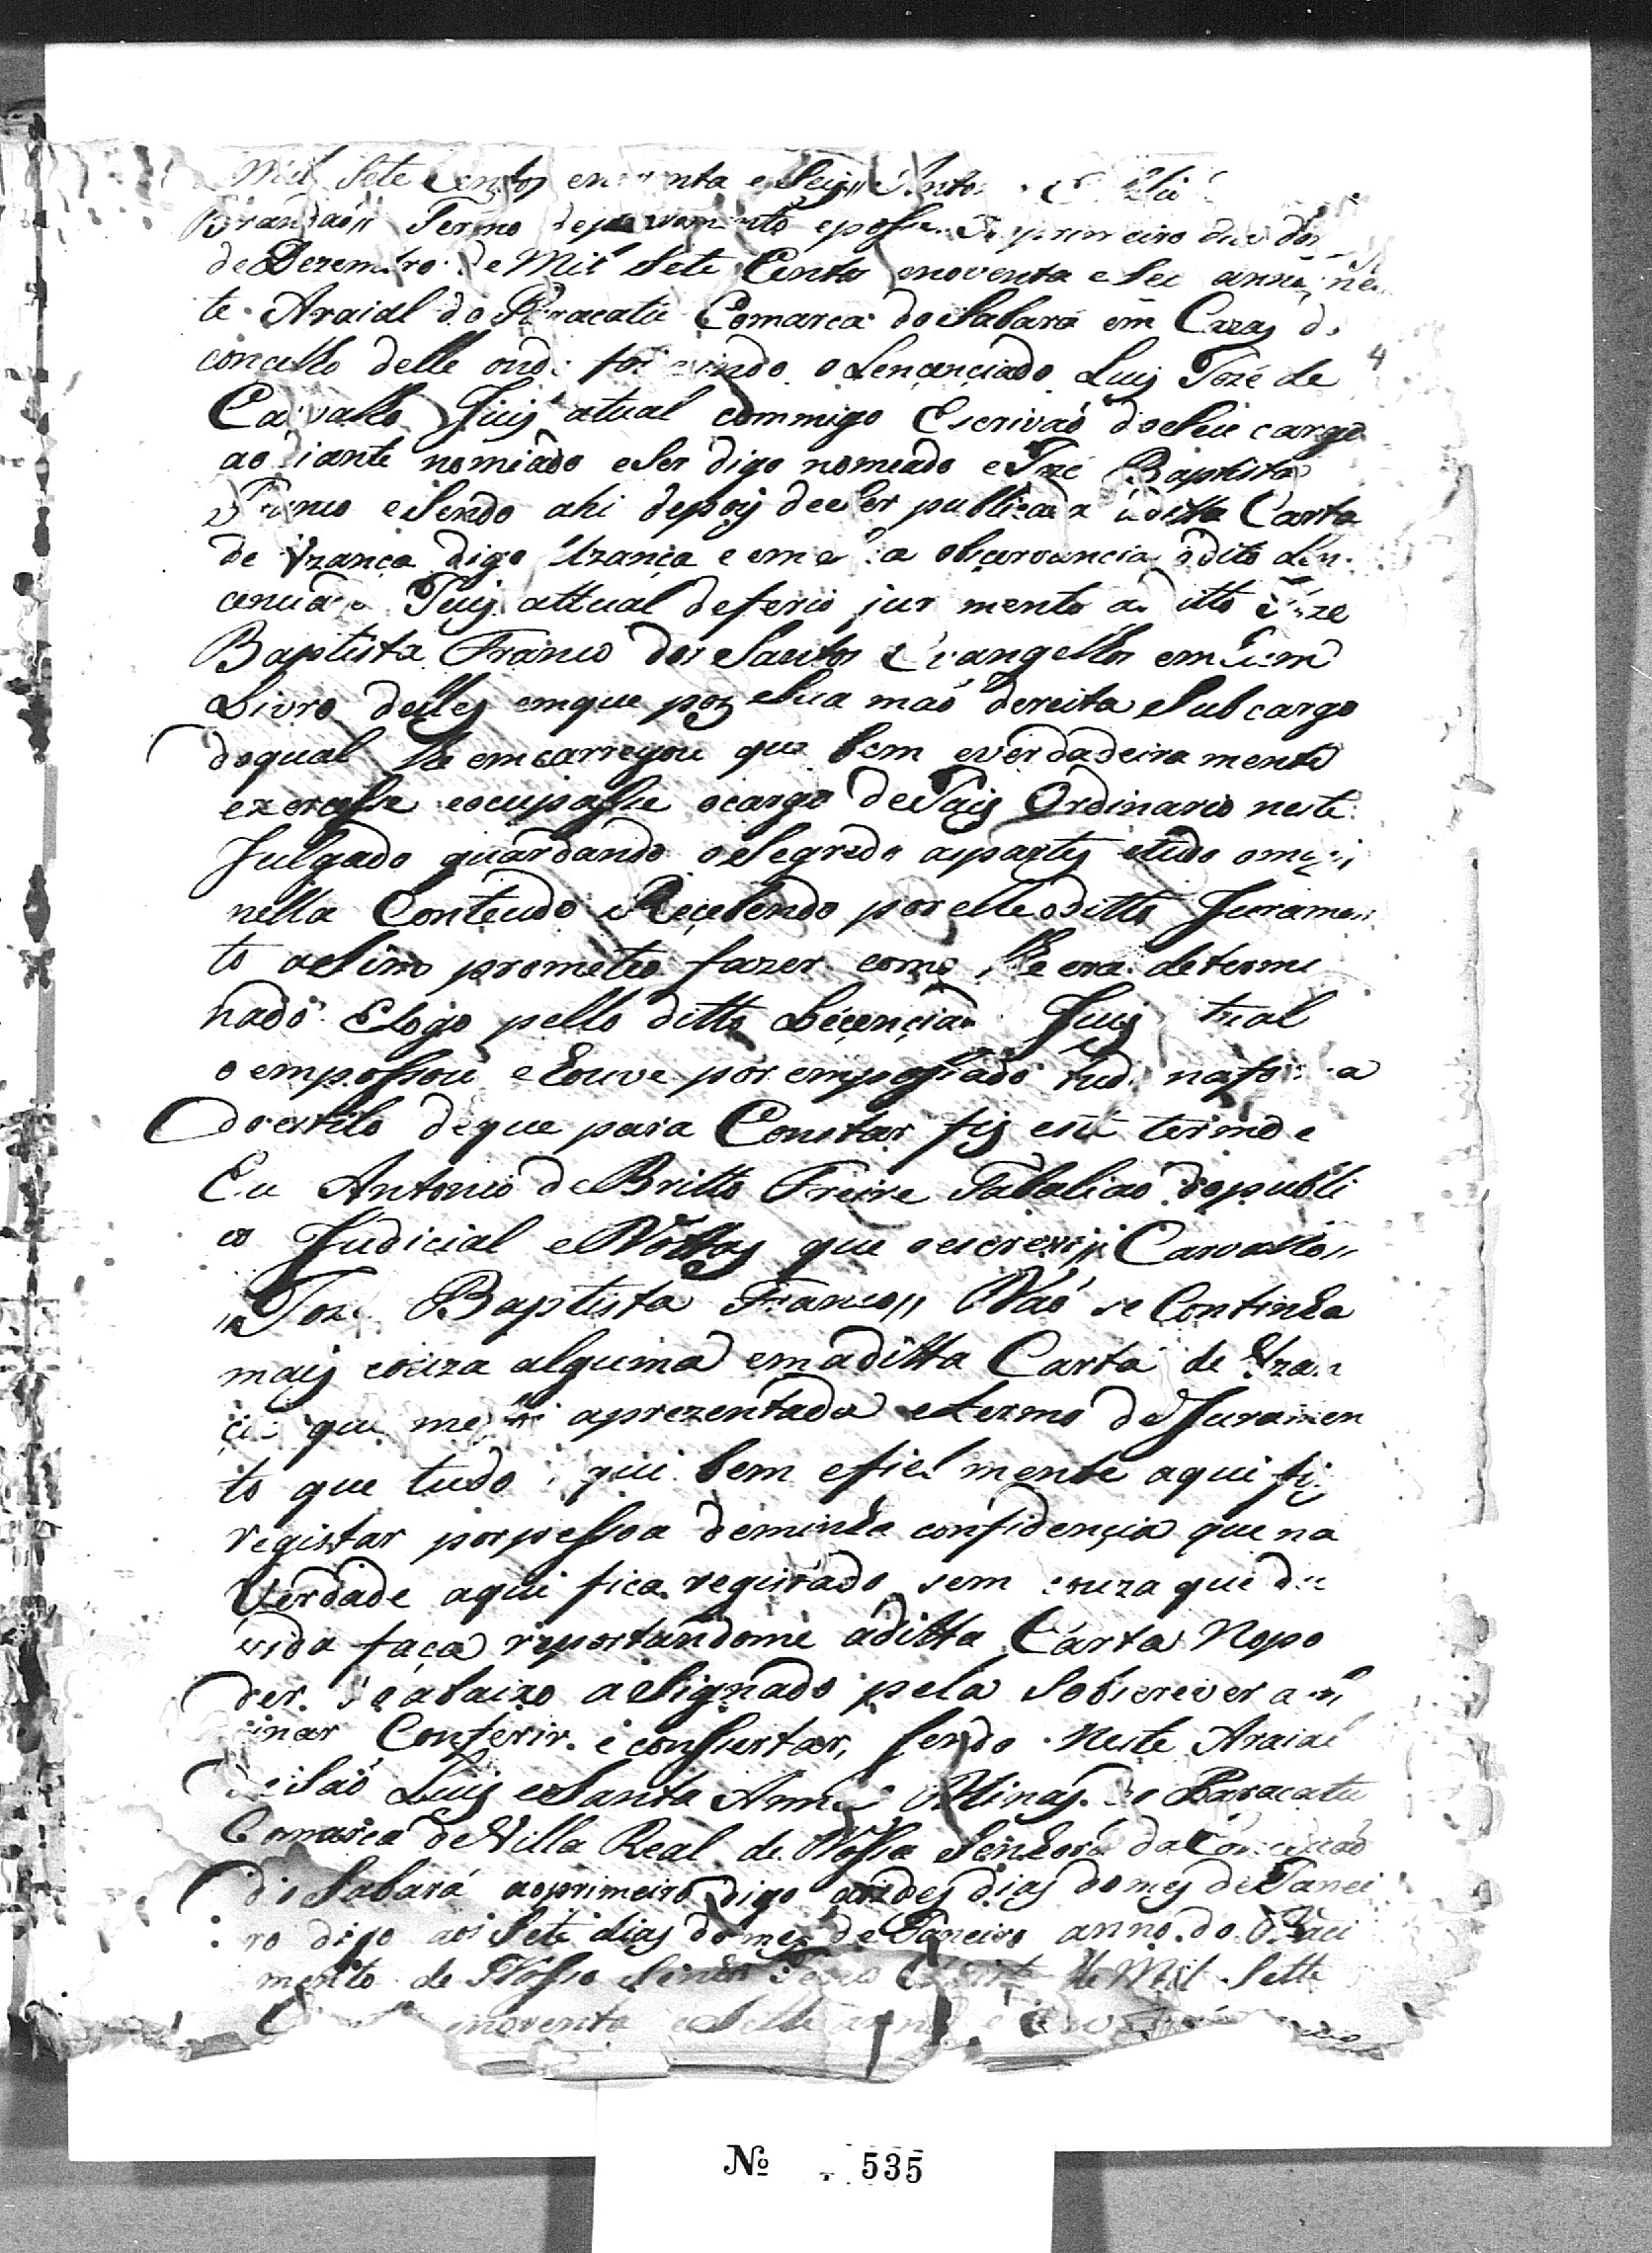 Mil Sete Centos enoventa eSeis
Brandaó Termo dejuramento eposse primeiro dia do
deDezembro de Mil Sete Centos enoventa eSeis annos nes
te Araial do Paracatú Comarca do Sabará em Cazas do
concelho delle onde foi vindo o Lencenciado Luis Jozé de
Carvalho Juis atual commigo Escrivaó doSeu cargo
ao diante nomiado eSer digo nomeado eJozé Baptista
Franco eSendo ahi depois deeSer publicada aditta Carta
de Vzança digo Uzança e em observancia odito Len
cenciado Juis attual deferio juramento ao ditto Joze
Baptista Franco dos Santos Evangelhos em hum
Livro delles emque pos aSua maó dereita eSubcargo
doqual lhe emcarregou que bem everdadeira mente
exercesse eocupasse ocargo deJuis Ordinario neste
Julgado guardando oSegredo aspartes etudo omais
nella Conteudo eRecebendo por elle oditto Juramen
to aSimo prometeo fazer como lhe era determi
nado Elogo pello ditto Lecenciado Juis atual
o empossou ehouve por empossado tudo nafo a
doestilo deque para Constar fis este termo e
Eu Antonio deBritto Freire Tabaliaó dopubli
co Judicial eNottas que oescrevy Carvalho
Joze Baptista Franco Naó se Continha
mais couza alguma emaditta Carta de Uzan
ça que me foi aprezentada eLermo deJuramen
to que tudo aqui bem efielmente aqui fis
registar porpessoa deminha confidençia que na
Verdade aqui fica registado sem couza que du
vida faça reportandome áditta Carta Nopo
der abaixo aSignado pela Sobscrever
inar Conferir e conssertar, sendo Neste Araial
de Saó Luis eSanta Anna Minas do Paracatu
Comarca deVilla Real de Nossa Senhora da Conceicaó
do Sabará aoprimeiro digo aosdes dias domes deJanei
ro digo aos Sete dias domes deJaneiro anno do Naci
mento de Nosso Senhor Mil Sette
enoventa eSette annos
4
No 535